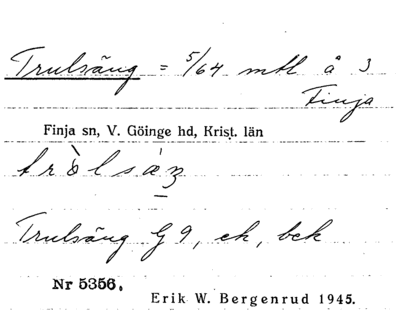 Trulsäng = 5/64 mtl å 3
Finja
Finja sn, V. Göinge hd, Krist. län
Trulsäng G 9, ek, bek
Nr 5356.
Erik W. Bergenrud 1945.